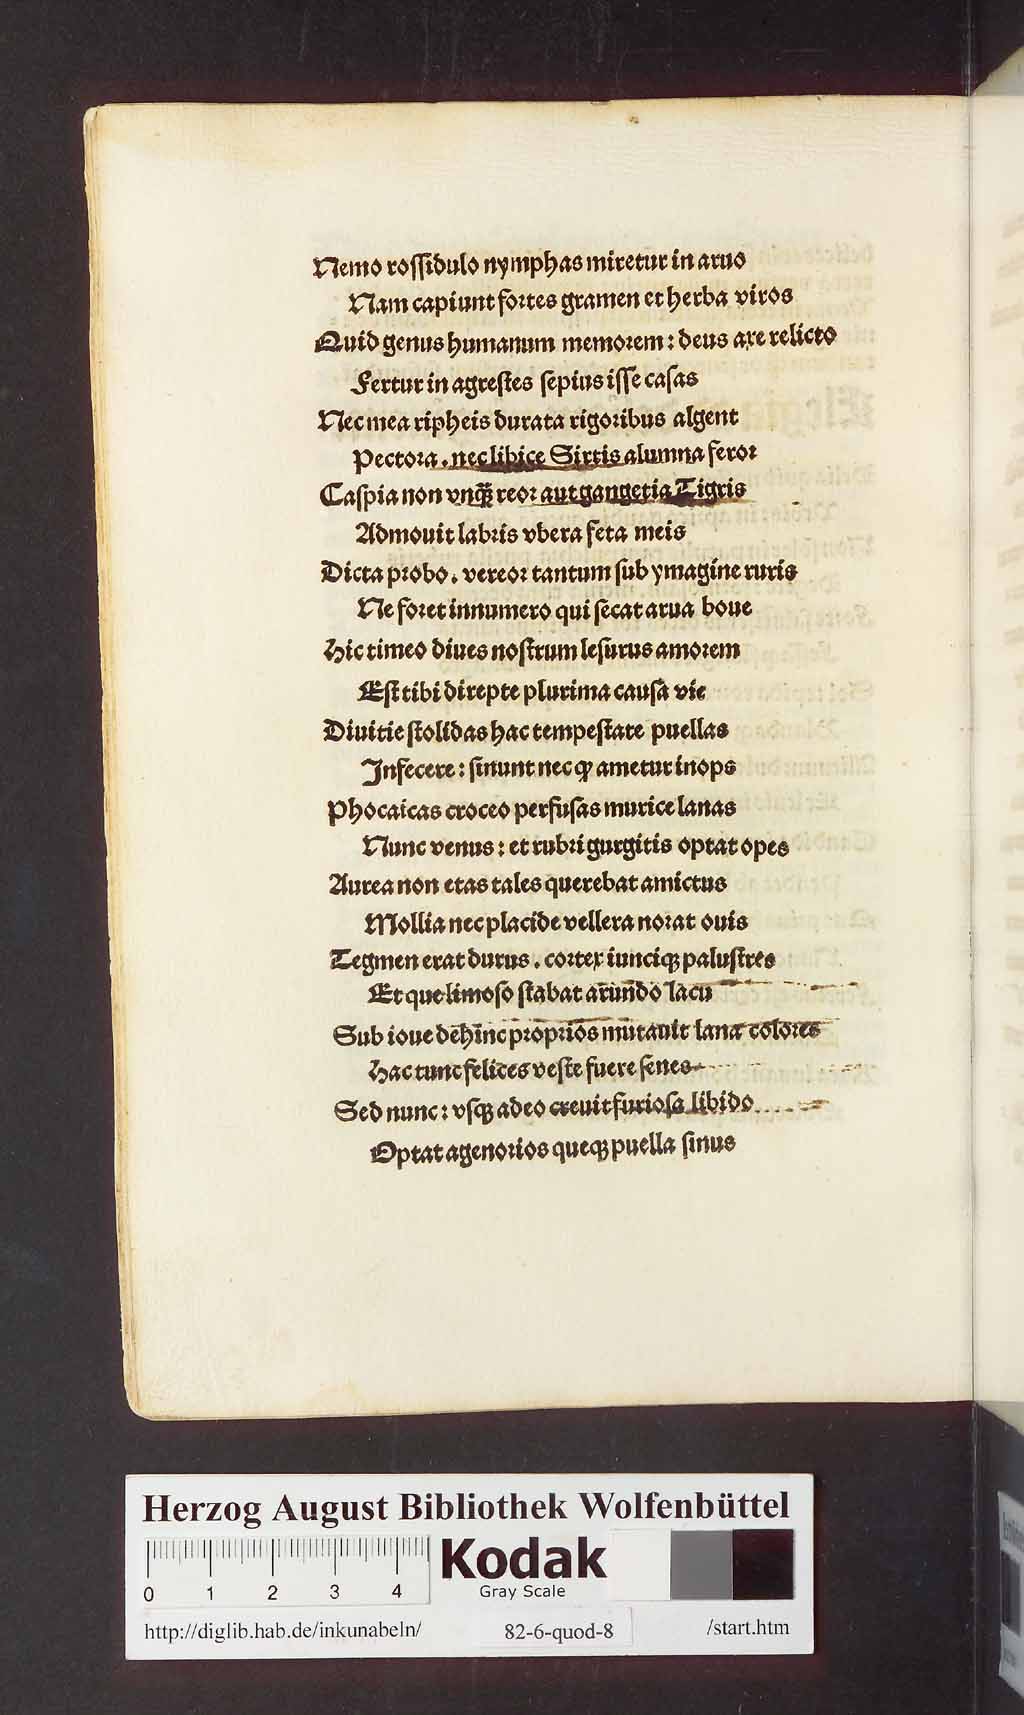 Nemo rossidulo nymphas miretur in aruo
Nam capiunt fortes gramen et herba viros
Quid genus humanum memorem: deus axe relicto
Fertur in agrestes sepius isse casas
Nec mea ripheis durata rigoribus algent
Pectora . nec libice Sirtis alumna feror
Caspia non vnqᷓ reor aut gangetia Tigris
Admouit labris vbera feta meis
Dicta probo . vereor tantum sub ymagine ruris
Ne foret innumero qui secat arua boue
Hic timeo diues nostrum lesurus amorem
Est tibi direpte plurima causa vie
Diuitie stolidas hac tempestate puellas
Infecere: sinunt nec qꝫ ametur inops
Phocaicas croceo perfusas murice lanas
Nunc venus: et rubri gurgitis optat opes
Aurea non etas tales querebat amictus
Mollia nec placide vellera norat ouis
Tegmen erat durus . cortex iunciqꝫ palustres
Et que limoso stabat arundo lacu
Sub ioue dehinc proprios mutauit lana colores
Hac tunc felices veste fuere senes
Sed nunc: vsqꝫ adeo creuit furiosa libido
Optat agenorios queqꝫ puella sinus
Herzog August Bibliothek Wolfenbüttel
0 1 2 3 4
Kodak
Gray Scale
http://diglib.hab.de/inkunabeln/ 82-6-quod-8 /start.htm